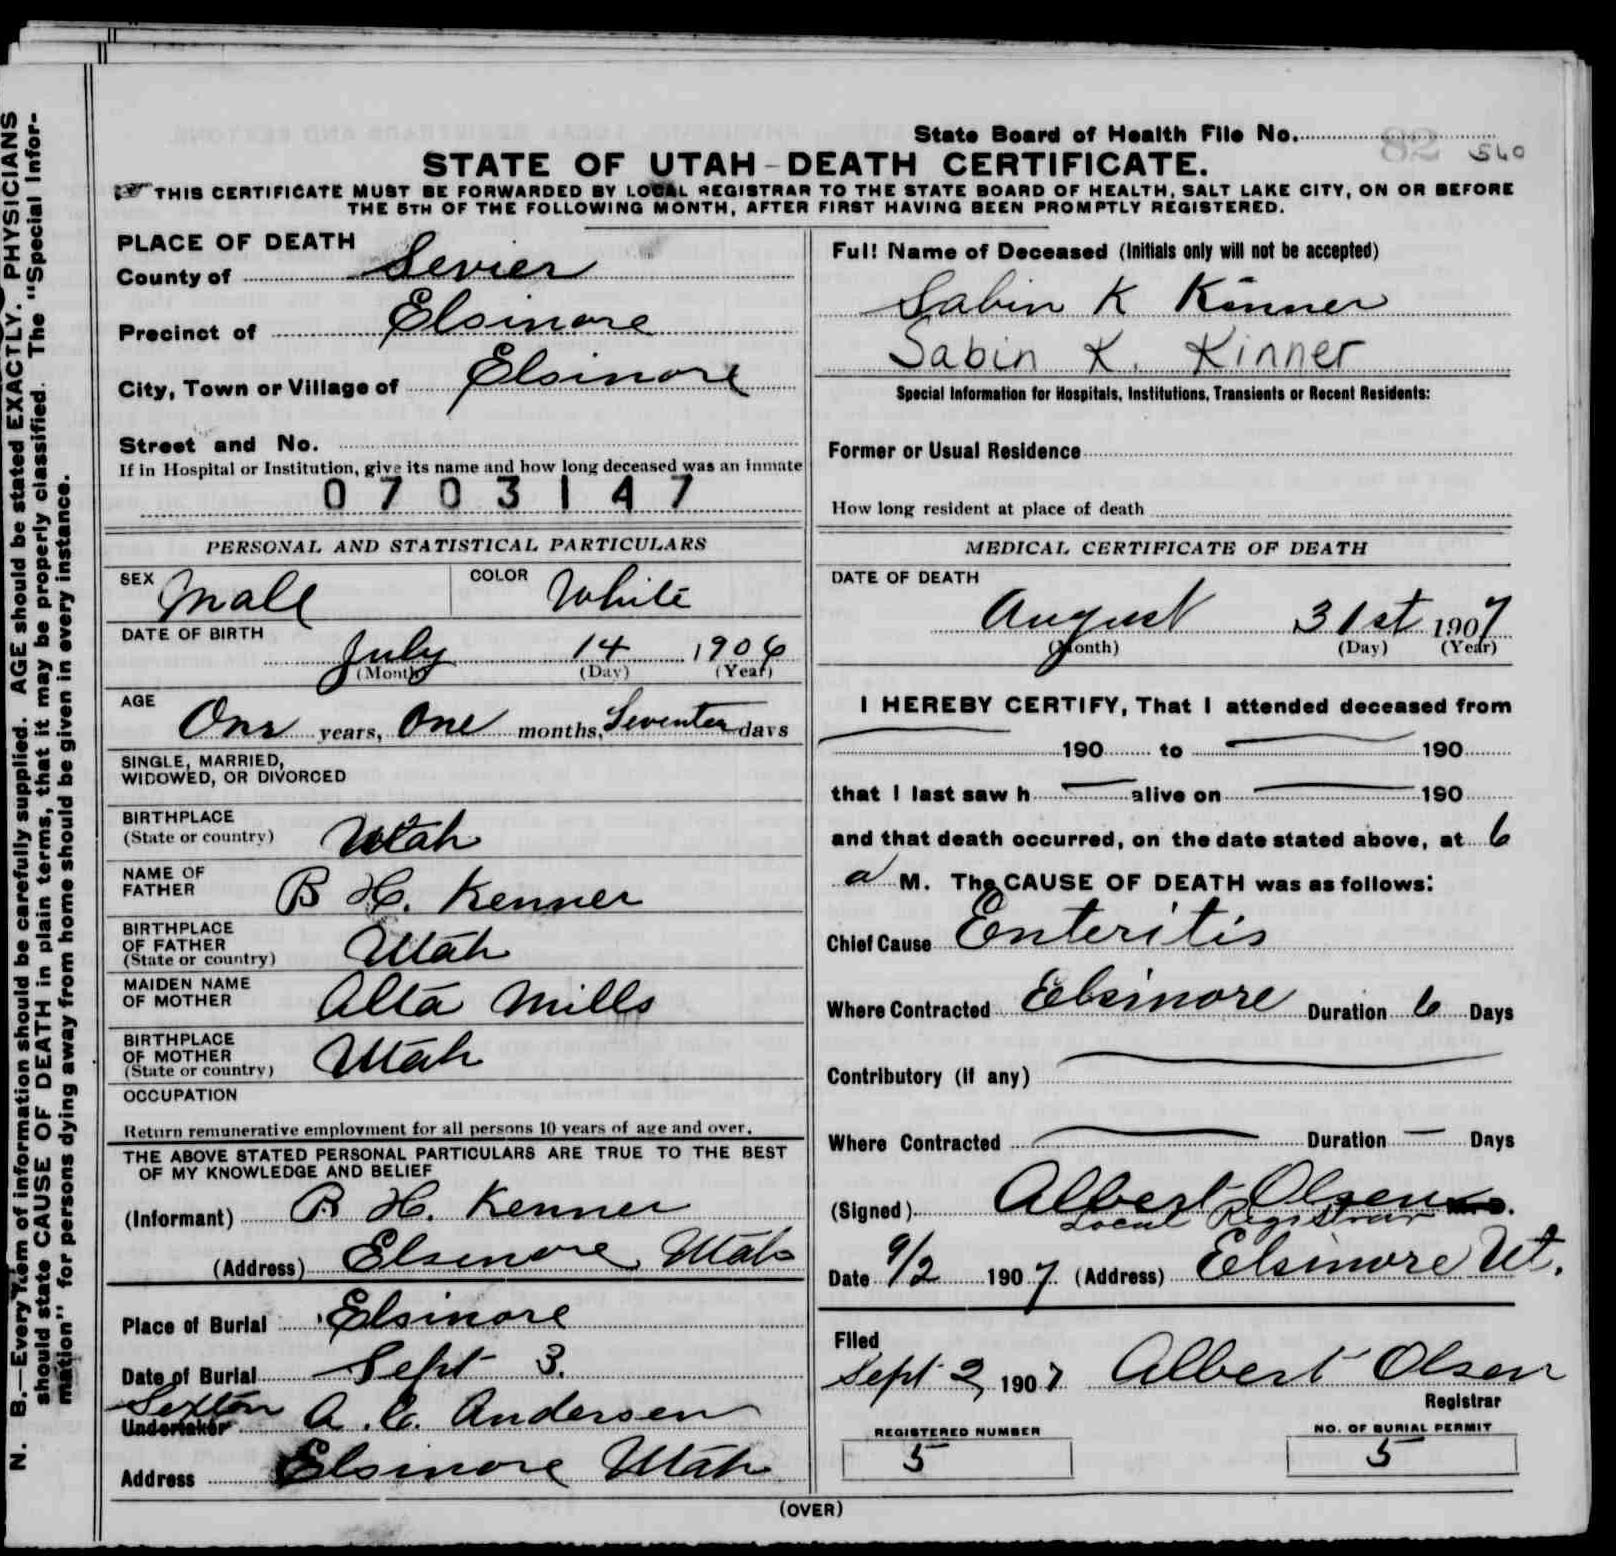 N. B.—Every item of information should be carefully supplied. AGE should be stated EXACTLY. PHYSICIANS
should state CAUSE OF DEATH in plain terms, that it may be properly classified. The "Special Infor-
mation" for persons dying away from home should be given in every instance.
State Board of Health File No. 82 560
STATE OF UTAH-DEATH CERTIFICATE.
THIS CERTIFICATE MUST BE FORWARDED BY LOCAL REGISTRAR TO THE STATE BOARD OF HEALTH, SALT LAKE CITY, ON OR BEFORE
THE 5TH OF THE FOLLOWING MONTH, AFTER FIRST HAVING BEEN PROMPTLY REGISTERED.
PLACE OF DEATH
County of Sevier
Precinct of Elsinore
City, Town or Village of Elsinore
Street and No.
If in Hospital or Institution, give its name and how long deceased was an inmate
0703147
PERSONAL AND STATISTICAL PARTICULARS
SEX Male COLOR White
DATE OF BIRTH
July 14 1906
(Month) (Day) (Year)
AGE
One years, One months, Seventen days
SINGLE, MARRIED,
WIDOWED, OR DIVORCED
BIRTHPLACE
(State or country) Utah
NAME OF
FATHER B H. Kenner
BIRTHPLACE
OF FATHER
(State or country) Utah
MAIDEN NAME
OF MOTHER Alta Mills
BIRTHPLACE
OF MOTHER
(State or country) Utah
OCCUPATION
Return remunerative employment for all persons 10 years of age and over.
THE ABOVE STATED PERSONAL PARTICULARS ARE TRUE TO THE BEST
OF MY KNOWLEDGE AND BELIEF
(Informant) B H. Kenner
(Address) Elsinore Utah
Place of Burial Elsinore
Date of Burial Sept 3.
Sexton
Undertaker A. C. Andersen
Address Elsinore Utah
Full Name of Deceased (Initials only will not be accepted)
Sabin K Kinner
Sabin K. Kinner
Special Information for Hospitals, Institutions, Transients or Recent Residents:
Former or Usual Residence
How long resident at place of death
MEDICAL CERTIFICATE OF DEATH
DATE OF DEATH
August 31st 1907
(Month) (Day) (Year)
I HEREBY CERTIFY, That I attended deceased from
190 to 190
that I last saw h alive on 190
and that death occurred, on the date stated above, at 6
a M. The CAUSE OF DEATH was as follows:
Chief Cause Enteritis
Where Contracted Elsinore Duration 6 Days
Contributory (if any)
Where Contracted Duration — Days
(Signed) Albert Olsen M.D.
Local Registrar
Date 9/2 1907. (Address) Elsinore Ut.
Filed
Sept 2, 1907 Albert Olsen
Registrar
REGISTERED NUMBER
5
NO. OF BURIAL PERMIT
5
(OVER)